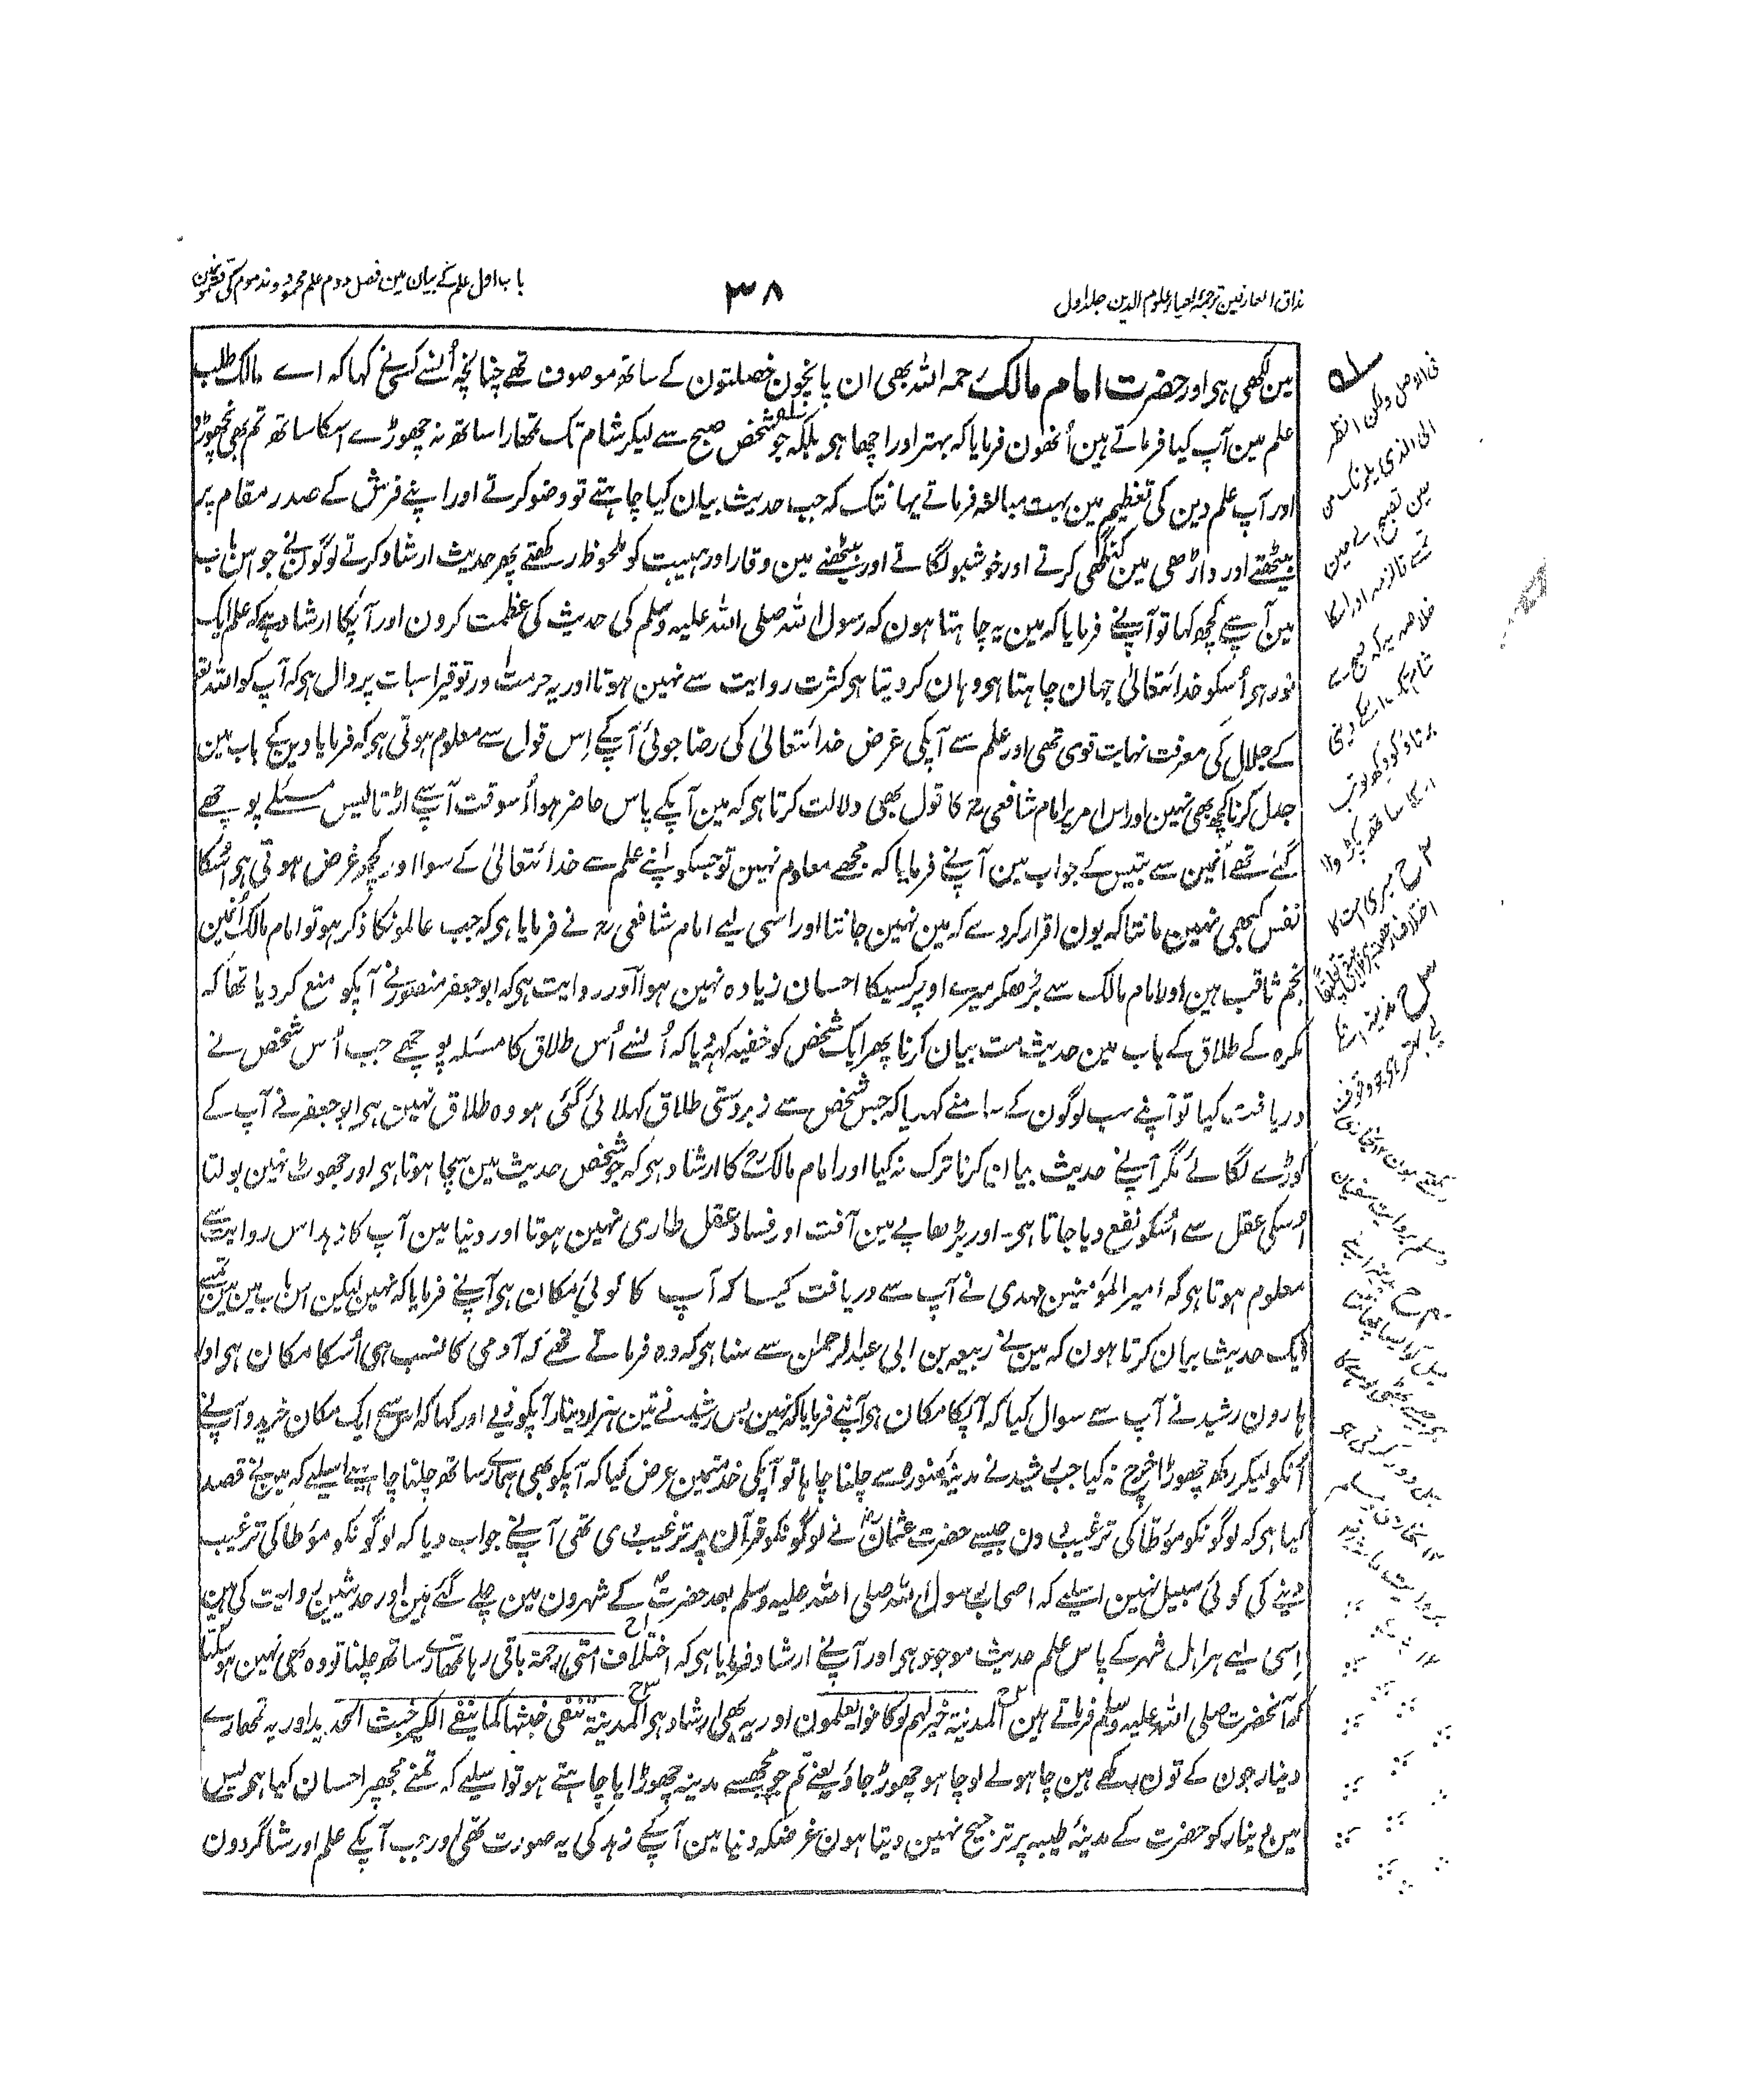 مذاق العارفین ترجمۂ احیاء علوم الدین جلد اول
۳۸
باب اول علم کے بیان مین فصل دوم علم محمود و مذموم کی قسمون مین
مین لکھی ہی اور حضرت امام مالک رحمہ اللہ بھی ان پانچون خصلتون کے ساتھ موصوف تھے چنانچہ اُنسے کسی نے کہا کہ اے مالک طلب
علم مین آپ کیا فرماتے ہین اُنھون فرمایا کہ بہتر اور اچھا ہی بلکہ جو شخص صبح سے لیکر شام تک تمھارا ساتھ نہ چھوڑے اسکا ساتھ تم بھی نچھوڑو
اور آپ علم دین کی تعظیم مین بہت مبالغہ فرماتے یہانتک کہ جب حدیث بیان کیا چاہتے تو وضو کرتے اور اپنے فرش کے صدر مقام پر
بیٹھتے اور داڑھی مین کنگھی کرتے اور خوشبو لگاتے اور بیٹھنے مین وقار اور ہیبت کو ملحوظ رکھتے پھر حدیث ارشاد کرتے لوگون نے جو اس باب
مین آپ سے کچھ کہا تو آپنے فرمایا کہ مین یہ چاہتا ہون کہ رسول اللہ صلی اللہ علیہ وسلم کی حدیث کی عظمت کرون اور آپکا ارشاد ہے کہ علم ایک
نور ہی اُسکو خدا ئتعالیٰ جہان چاہتا ہی وہان کر دیتا ہی کثرت روایت سے نہین ہوتا اور یہ حرمت اور توقیر اسبات پر دال ہی کہ آپ کو اللہ تعالی
کے جلال کی معرفت نہایت قوی تھی اور علم سے آپکی غرض خدا ئتعالیٰ کی رضا جوئی آپکے اِس قول سے معلوم ہوتی ہی کہ فرمایا دین کے باب مین
جدل کرنا کچھ بھی نہین اور اس امر پر امام شافعی رح کا قول بھی دلالت کرتا ہی کہ مین آپکے پاس حاضر ہوا اُسوقت آپ سے اڑتالیس مسئلے پوچھے
گئے تھے اُنمین سے بتیس کے جواب مین آپنے فرمایا کہ مجھے معلوم نہین تو جسکو اپنے علم سے خدا ئتعالیٰ کے سوا اور کچھ غرض ہوتی ہی اُسکا
نفس کبھی نہین مانتا کہ یون اقرار کر دے کہ مین نہین جانتا اور اسی لیے امام شافعی رح نے فرمایا ہی کہ جب عالمونکا ذکر ہو تو امام مالک اُنمین
نجم ثاقب ہین اور امام مالک سے بڑھکر میرے اوپر کسیکا احسان زیادہ نہین ہوا اور روایت ہی کہ ابو جعفر منصور نے آپکو منع کر دیا تھا کہ
مکرہ کے طلاق کے باب مین حدیث مت بیان کرنا پھر ایک شخص کو خفیہ کہدیا کہ اُنسے اُس طلاق کا مسئلہ پوچھے جب اُس شخص نے
دریافت کیا تو آپنے سب لوگون کے سامنے کہدیا کہ جس شخص سے زبردستی طلاق کہلائی گئی ہو وہ طلاق نہین ہی ابو جعفر نے آپ کے
کوڑے لگائے مگر آپنے حدیث بیان کرنا ترک نہ کیا اور امام مالک رح کا ارشاد ہی کہ جو شخص حدیث مین سچا ہوتا ہی اور جھوٹ نہین بولتا
اُسکی عقل سے اُسکو نفع دیا جاتا ہی۔ اور بڑھاپے مین آفت اور فساد عقل طاری نہین ہوتا اور دنیا مین آپ کا زہد اس روایت سے
معلوم ہوتا ہی کہ امیر المؤمنین مہدی نے آپ سے دریافت کیا کہ آپ کا کوئی مکان ہی آپنے فرمایا کہ نہین لیکن اس باب مین مین تمسے
ایک حدیث بیان کرتا ہون کہ مین نے ربیعہ بن ابی عبد الرحمٰن سے سنا ہی کہ وہ فرماتے تھے کہ آدمی کا نسب ہی اُسکا مکان ہی اور
ہارون رشید نے آپ سے سوال کیا کہ آپکا مکان ہی آپنے فرمایا کہ نہین پس رشید نے تین ہزار دینار آپکو دیے اور کہا کہ اس سے ایک مکان خریدو آپنے
اُنکو لیکر رکھ چھوڑا خرچ نہ کیا جب رشید نے مدینۂ منورہ سے چلنا چاہا تو آپکی خدمتمین عرض کیا کہ آپکو بھی ہمارے ساتھ چلنا چاہیے اسلیے کہ مین نے قصد
کیا ہی کہ لوگونکو مؤطا کی ترغیب دون جیسے حضرت عثمان رض نے لوگونکو قرآن پر ترغیب دی تھی آپنے جواب دیا کہ لوگونکو مؤطا کی ترغیب
دینے کی کوئی سبیل نہین اسلیے کہ اصحاب رسول اللہ صلی اللہ علیہ وسلم بعد حضرت ص کے شہرون مین چلے گئے ہین اور حدیثین روایت کی ہین
اِسی لیے ہر اہل شہر کے پاس علم حدیث موجود ہی اور آپنے ارشاد فرمایا ہی کہ اختلاف امتی رحمۃ باقی رہا تمھارے ساتھ چلنا تو وہ بھی نہین ہو سکتا
کہ آنحضرت صلی اللہ علیہ وسلم فرماتے ہین المدینۃ خیر لہم لو کانوا یعلمون اور یہ بھی ارشاد ہی المدینۃ تنفی خبثہا کما ینفی الکیر خبث الحدید اور یہ تمھارے
دینار جون کے تون رکھے ہین چاہو لے لو چاہو چھوڑ جاؤ یعنے تم جو مجھسے مدینہ چھوڑایا چاہتے ہو تو اسلیے کہ تمنے مجھپر احسان کیا ہی پس
مین دینار کو حضرت کے مدینۂ طیبہ پر ترجیح نہین دیتا ہون غرضکہ دنیا مین آپکے زہد کی یہ صورت تھی اور جب آپکے علم اور شاگردون
فی الاصل ولکن انظر
الی الذی یلزمک من
حین تصبح الے حین
تمسے فالزمہ اور اسکا
خلاصہ یہ کہ صبح سے
شام تک اسکے دینی
برتاؤ کو دیکھو تب
اسکا ساتھ پکڑو ۱۲
۲ ح میری امت کا